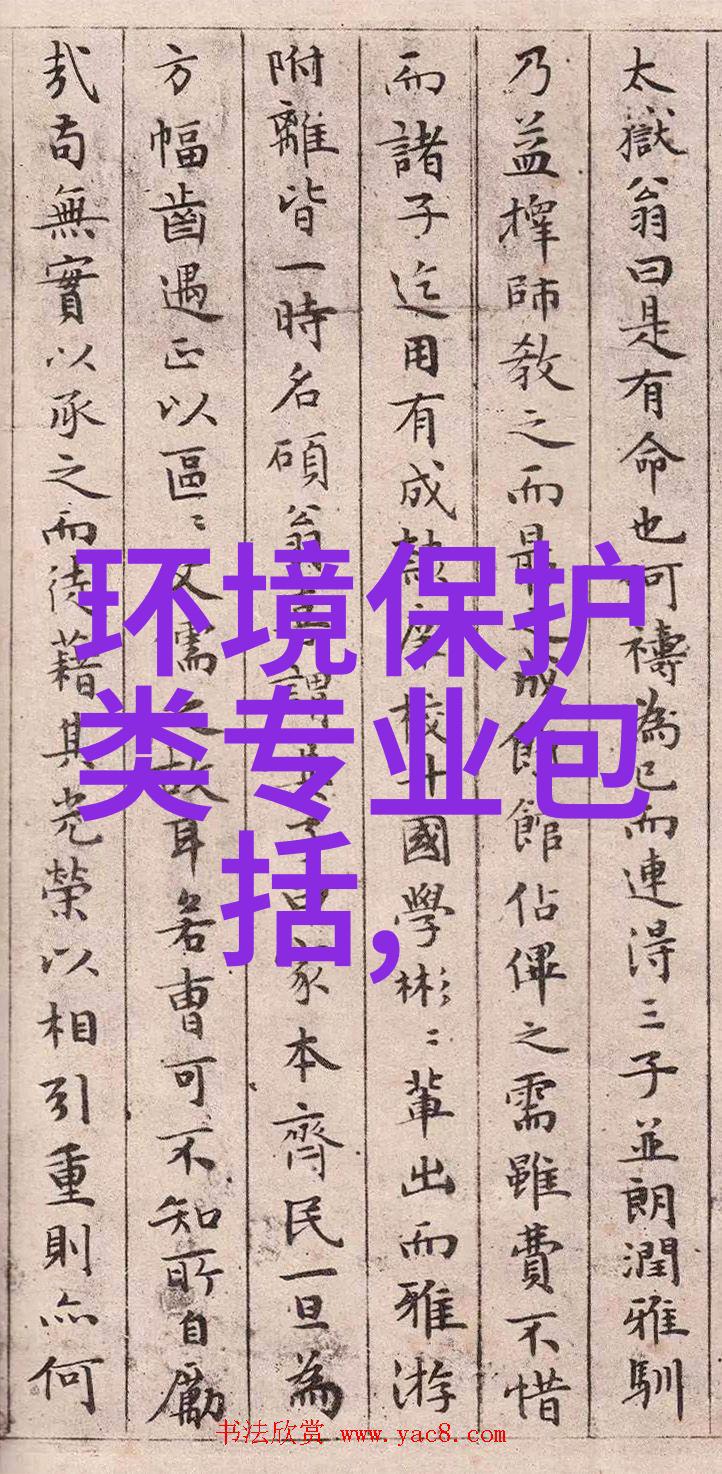 太嶽翁曰是有命也可禱為已而連得三子並朗潤雅馴
乃益擇師教之而最館佔俾之需雖費不惜
而諸子迄用有成庠校升國學彬〻輩出而雅游
附離皆一時名碩翁謂其子曰家本齊民一旦為
方幅齒遇正以區〻文儒之故耳若曹可不知所自勵
哉苟無實以承之而徒藉其光榮以相引重則亦何
环境保护
类专业包
括,
书法欣赏 www.yac8.com